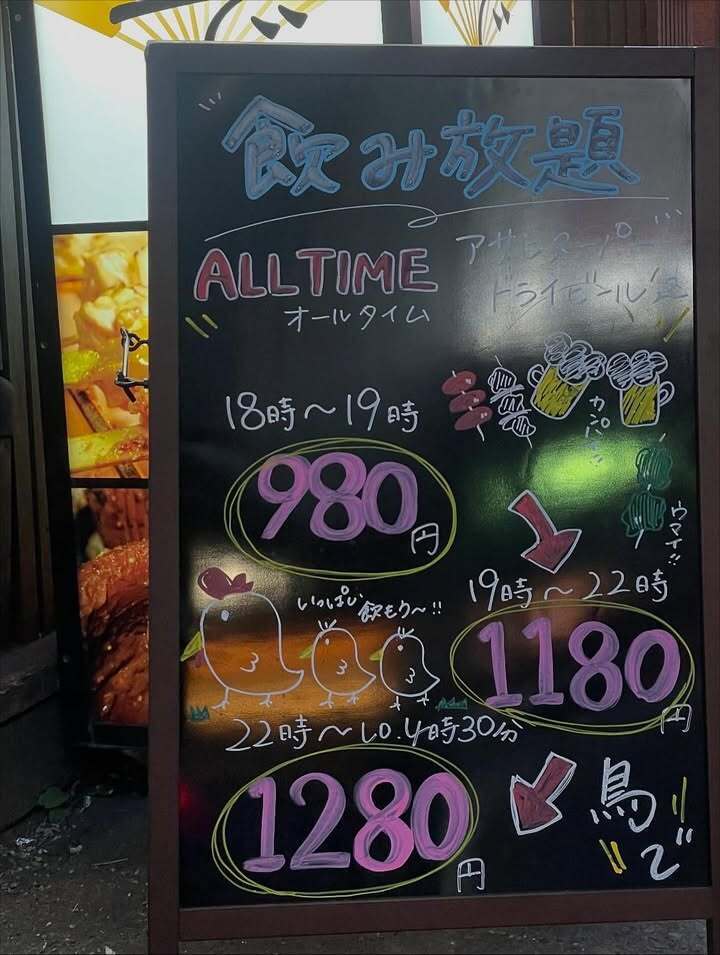 飲み放題
ALL TIME
オールタイム
アサヒスーパー
ドライビール
18時～19時
980円
カンパイ!!
ウマイ!!
19時～22時
1180円
いっぱい飲もう～!!
22時～L.O.4時30分
1280円
鳥